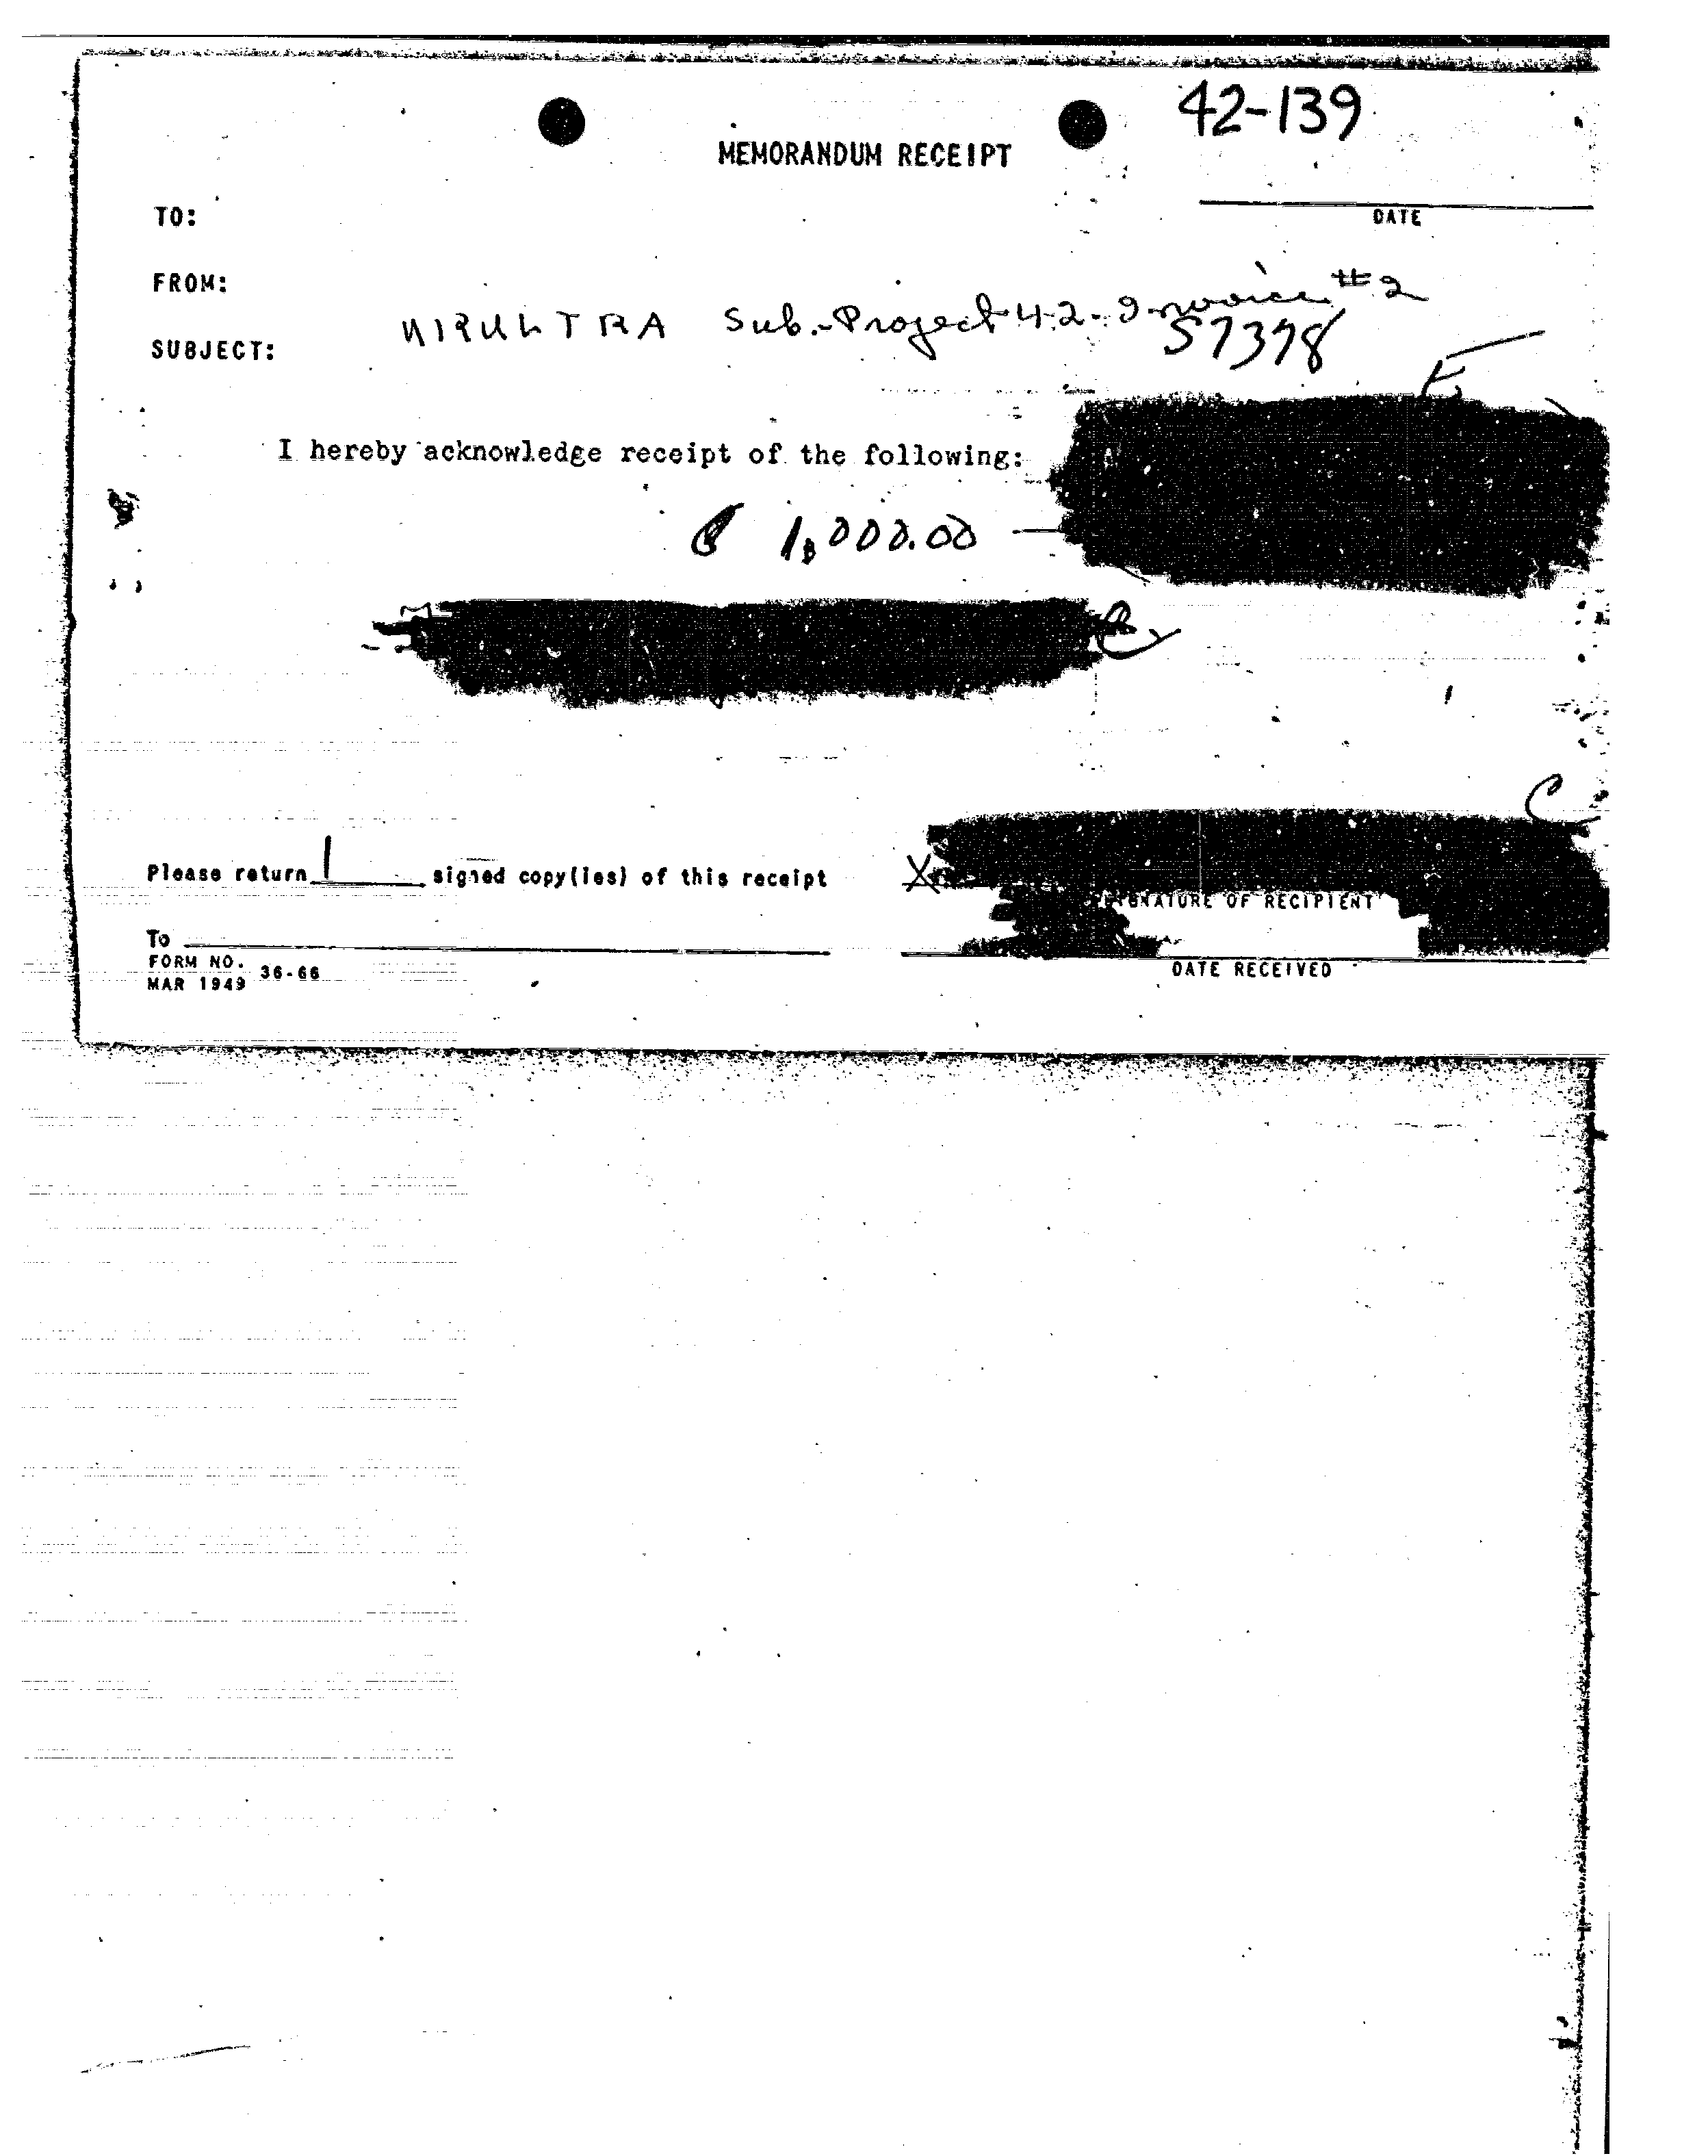 42-139
MEMORANDUM RECEIPT
TO:
DATE
FROM:
SUBJECT: MKULTRA Sub-Project 42- Invoice #2
57378
I hereby acknowledge receipt of the following:
$ 1,000.00 —
C
Please return 1 signed copy(ies) of this receipt
X
SIGNATURE OF RECIPIENT
To
FORM NO. 36-66
MAR 1949
DATE RECEIVED